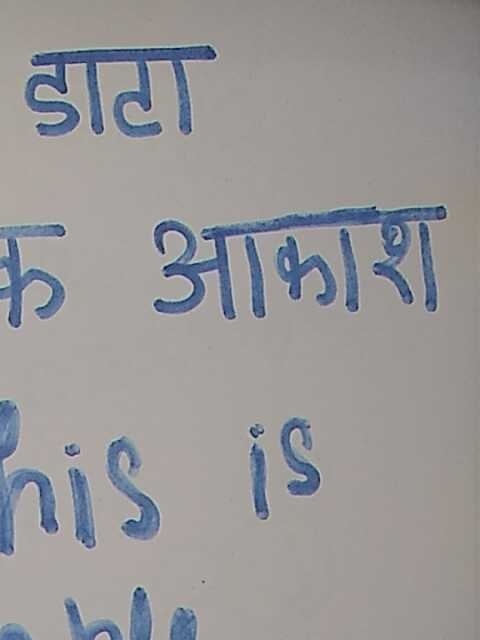 डाटा
क आकाश
his is